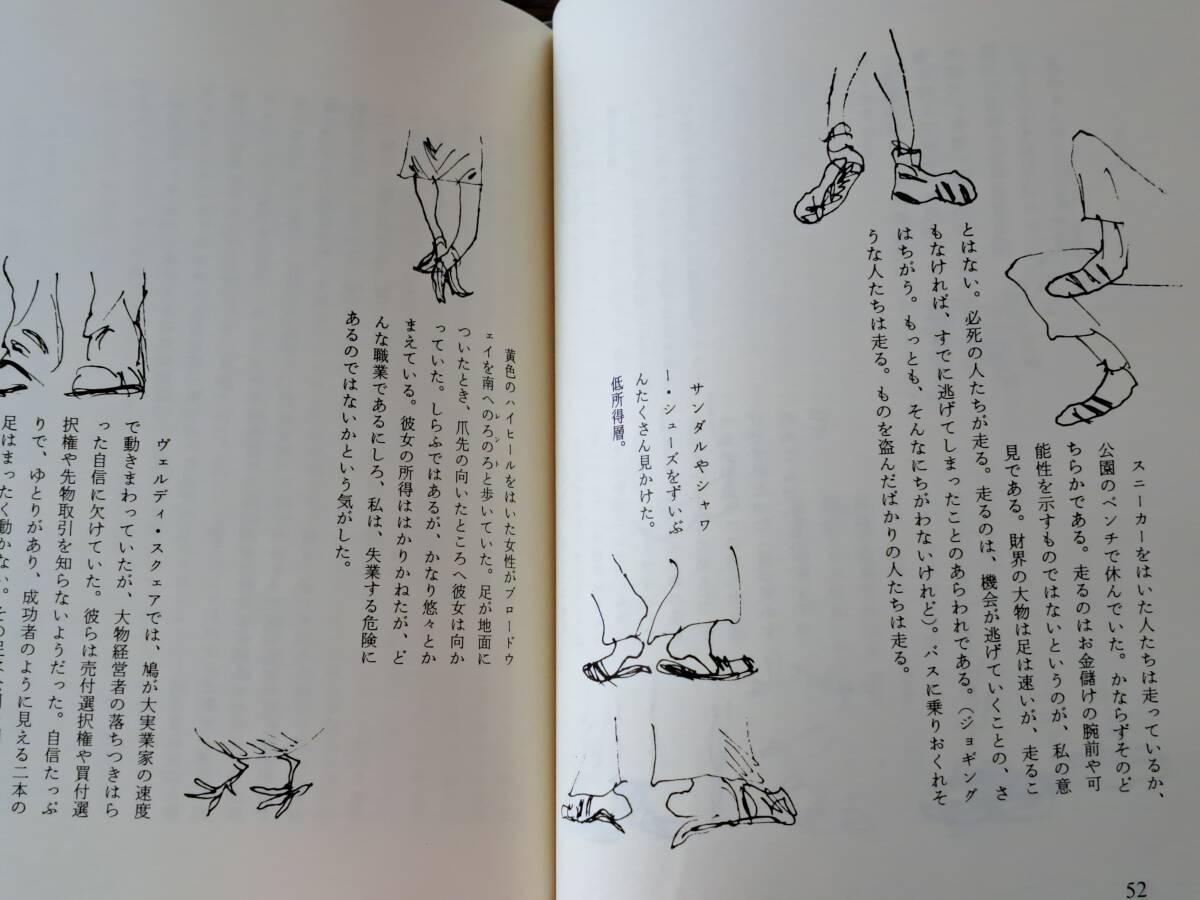 スニーカーをはいた人たちは走っているか、
公園のベンチで休んでいた。かならずそのど
ちらかである。走るのはお金儲けの腕前や可
能性を示すものではないというのが、私の意
見である。財界の大物は足は速いが、走るこ
とはない。必死の人たちが走る。走るのは、機会が逃げていくことの、さ
もなければ、すでに逃げてしまったことのあらわれである。（ジョギング
はちがう。もっとも、そんなにちがわないけれど）。バスに乗りおくれそ
うな人たちは走る。ものを盗んだばかりの人たちは走る。
サンダルやシャワ
ー・シューズをずいぶ
んたくさん見かけた。
低所得層。
52
黄色のハイヒールをはいた女性がブロードウ
ェイを南へのろのろと歩いていた。足が地面に
ついたとき、爪先の向いたところへ彼女は向か
っていた。しらふではあるが、かなり悠々とか
まえている。彼女の所得ははかりかねたが、ど
んな職業であるにしろ、私は、失業する危険に
あるのではないかという気がした。
ヴェルディ・スクェアでは、鳩が大実業家の速度
で動きまわっていたが、大物経営者の落ちつきはら
った自信に欠けていた。彼らは売付選択権や買付選
択権や先物取引を知らないようだった。自信たっぷ
りで、ゆとりがあり、成功者のように見える二本の
足はまったく動かない。その足は